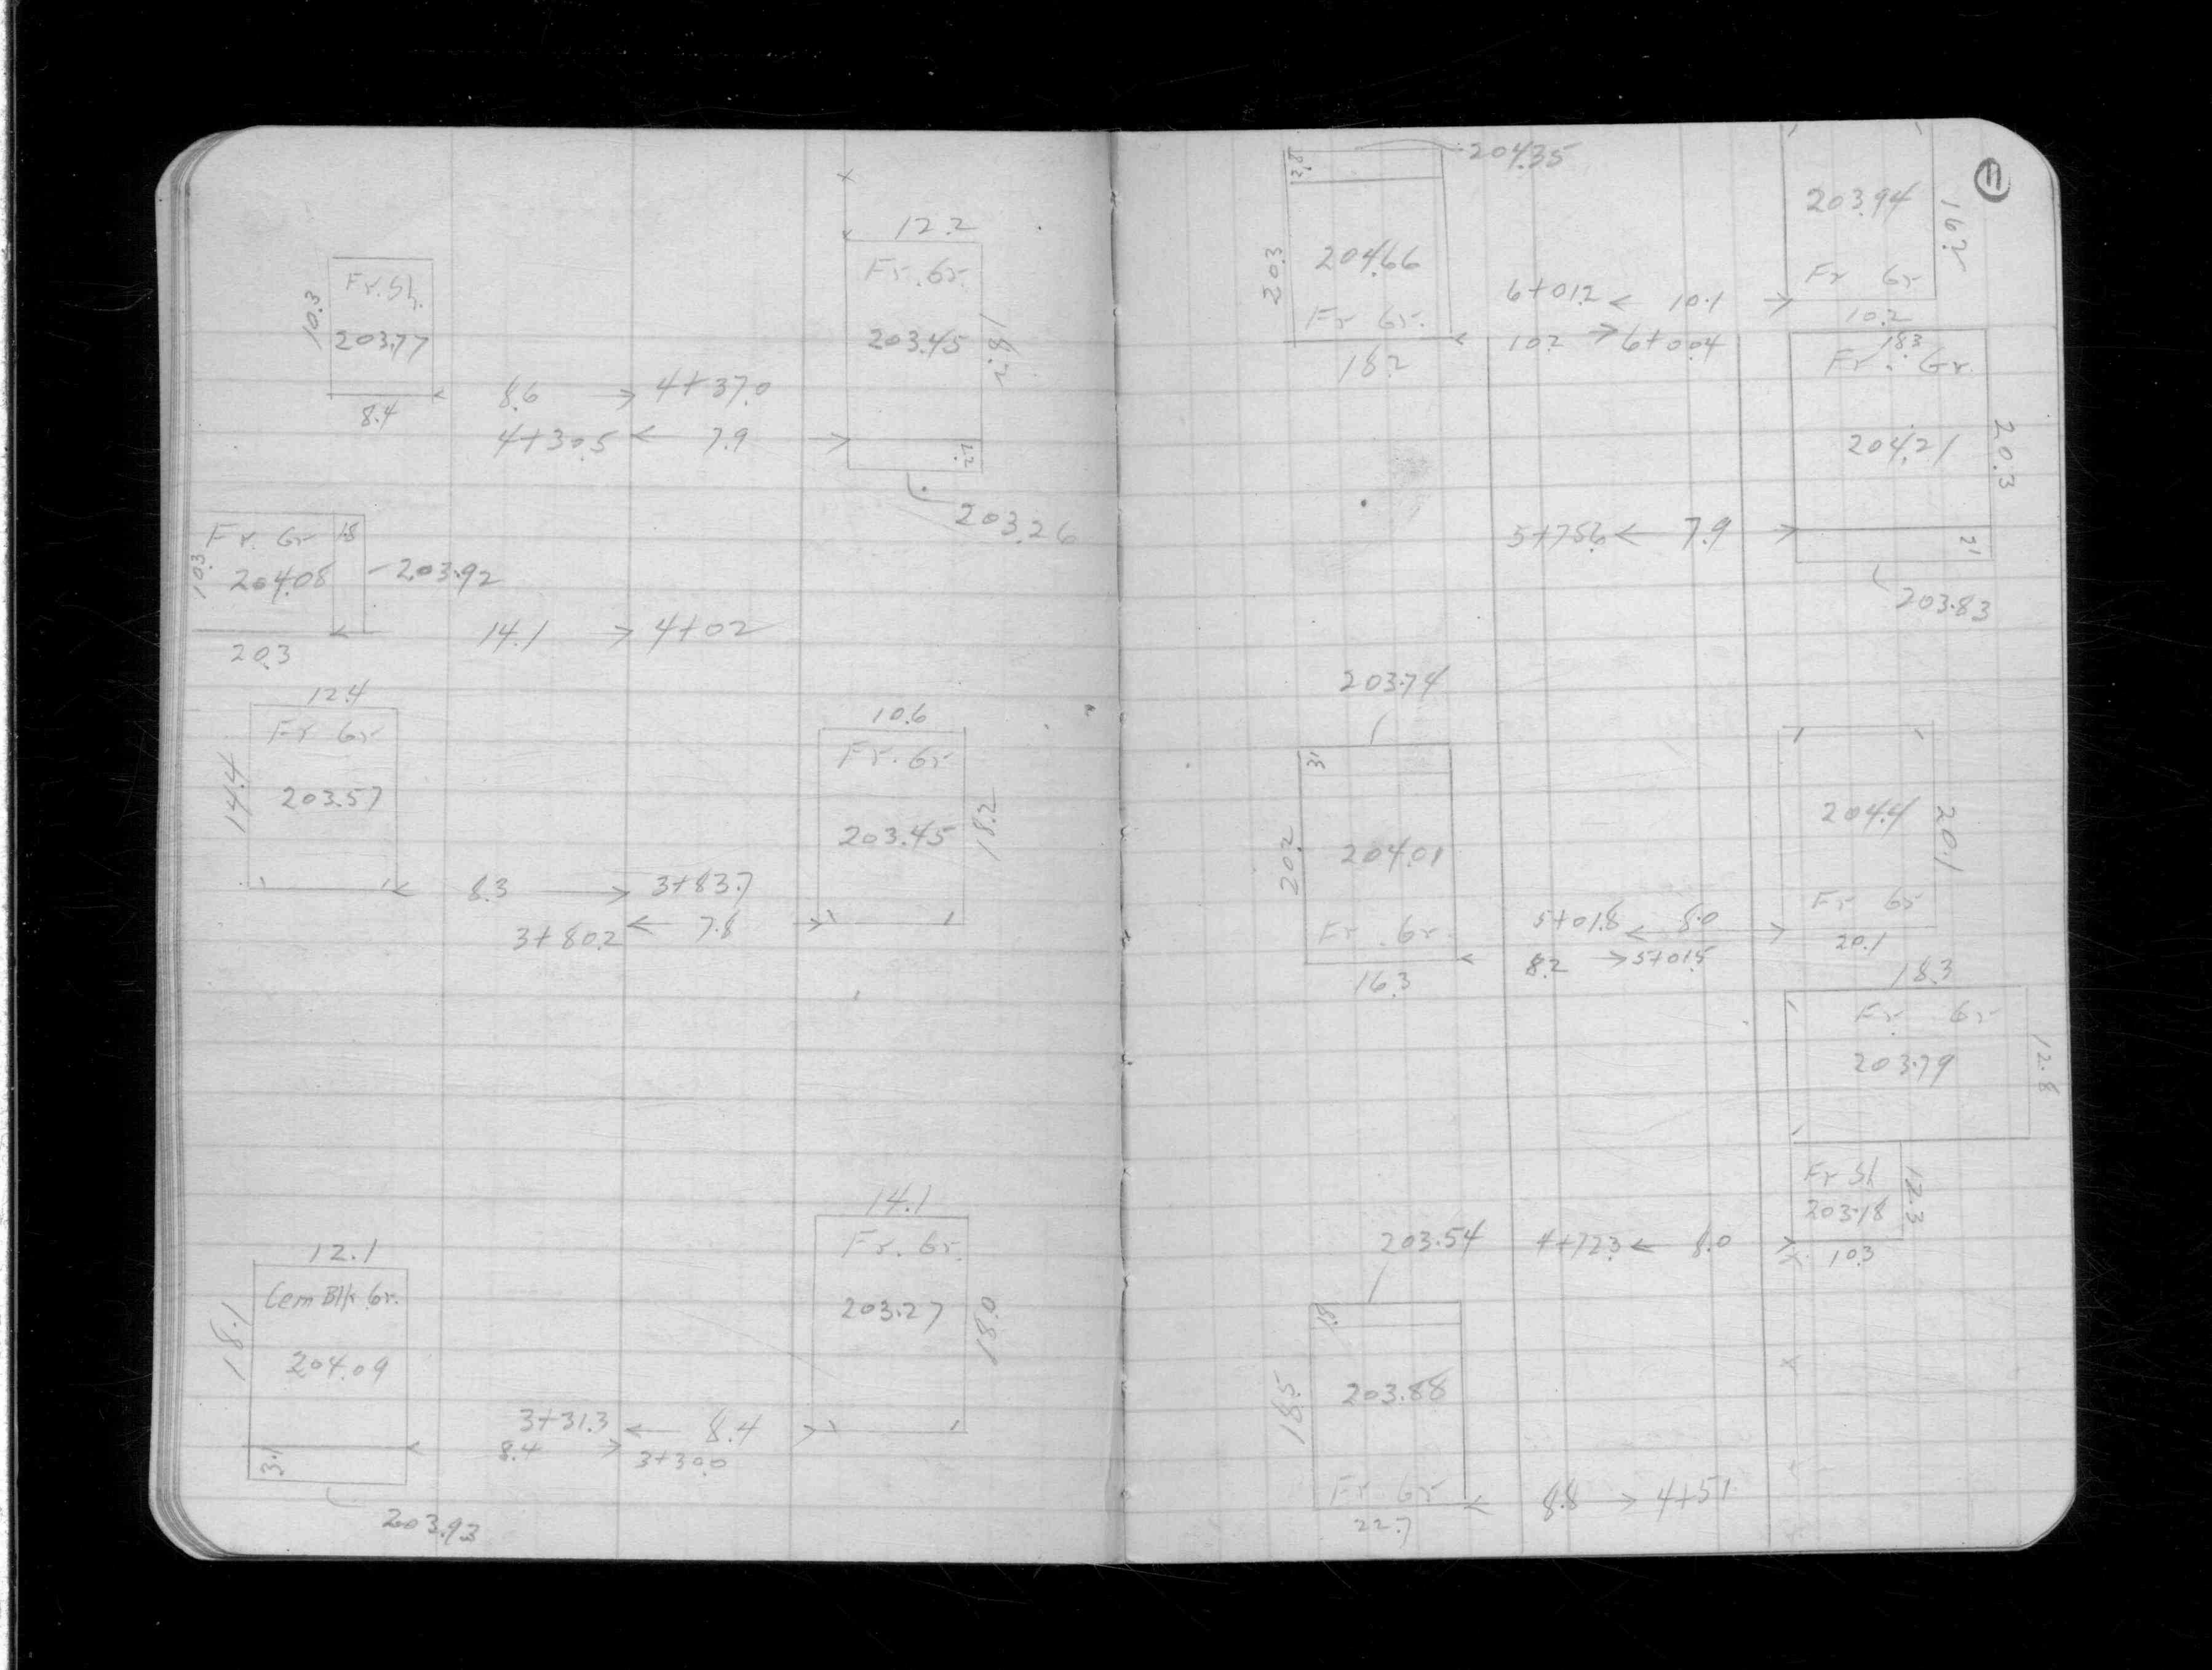 12.2
Fr. Sh.
10.3
203.77
8.4
Fr. Gr.
203.45
18.2
8.6 → 4+37.0
4+30.5 ← 7.9 →
203.26
Fr. Gr 1.8
10.3
204.08 - 203.92
20.3
14.1 → 4+02
12.4
Fr Gr
14.4
203.57
10.6
Fr. Gr
203.45
18.2
8.3 → 3+83.7
3+80.2 ← 7.8 →
14.1
Fr. Gr.
203.27
18.0
12.1
Cem Blk Gr.
18.1
204.09
3.1
3+31.3 ← 8.4 →
8.4 → 3+30.0
203.93
11
204.35
2.8
204.66
20.3
Fr Gr.
18.2
203.94
16.2
Fr Gr
10.2
6+01.2 ← 10.1 →
10.2 → 6+00.4
18.3
Fr. Gr.
204.21
20.3
5+75.6 ← 7.9 →
2.1
203.83
203.74
3.1
204.01
20.2
Fr. Gr.
16.3
204.4
20.1
Fr Gr
20.1
5+01.8 ← 8.0 →
8.2 → 5+01.5
18.3
Fr. Gr
203.79
12.8
Fr Sh
203.18
12.3
10.3
203.54
4+72.3 ← 8.0 →
203.88
18.5
Fr Gr
22.7
8.8 → 4+51